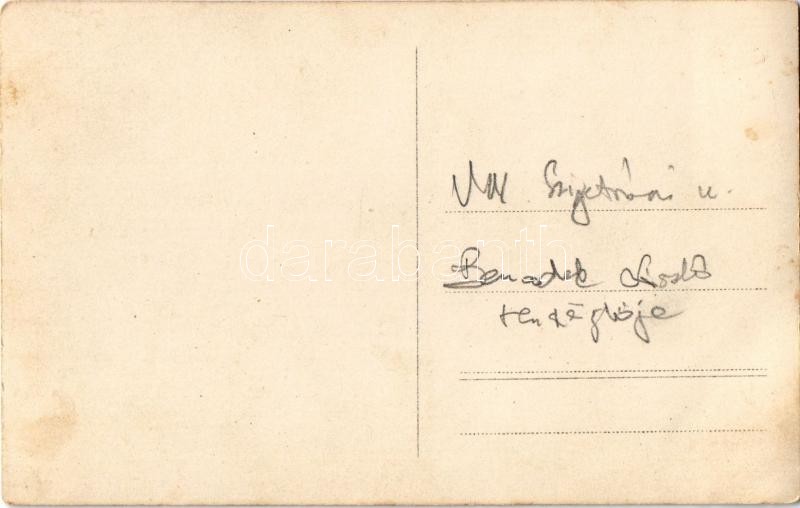 VIII Szigetvári u.
darabanth
Benedek László
vendéglője